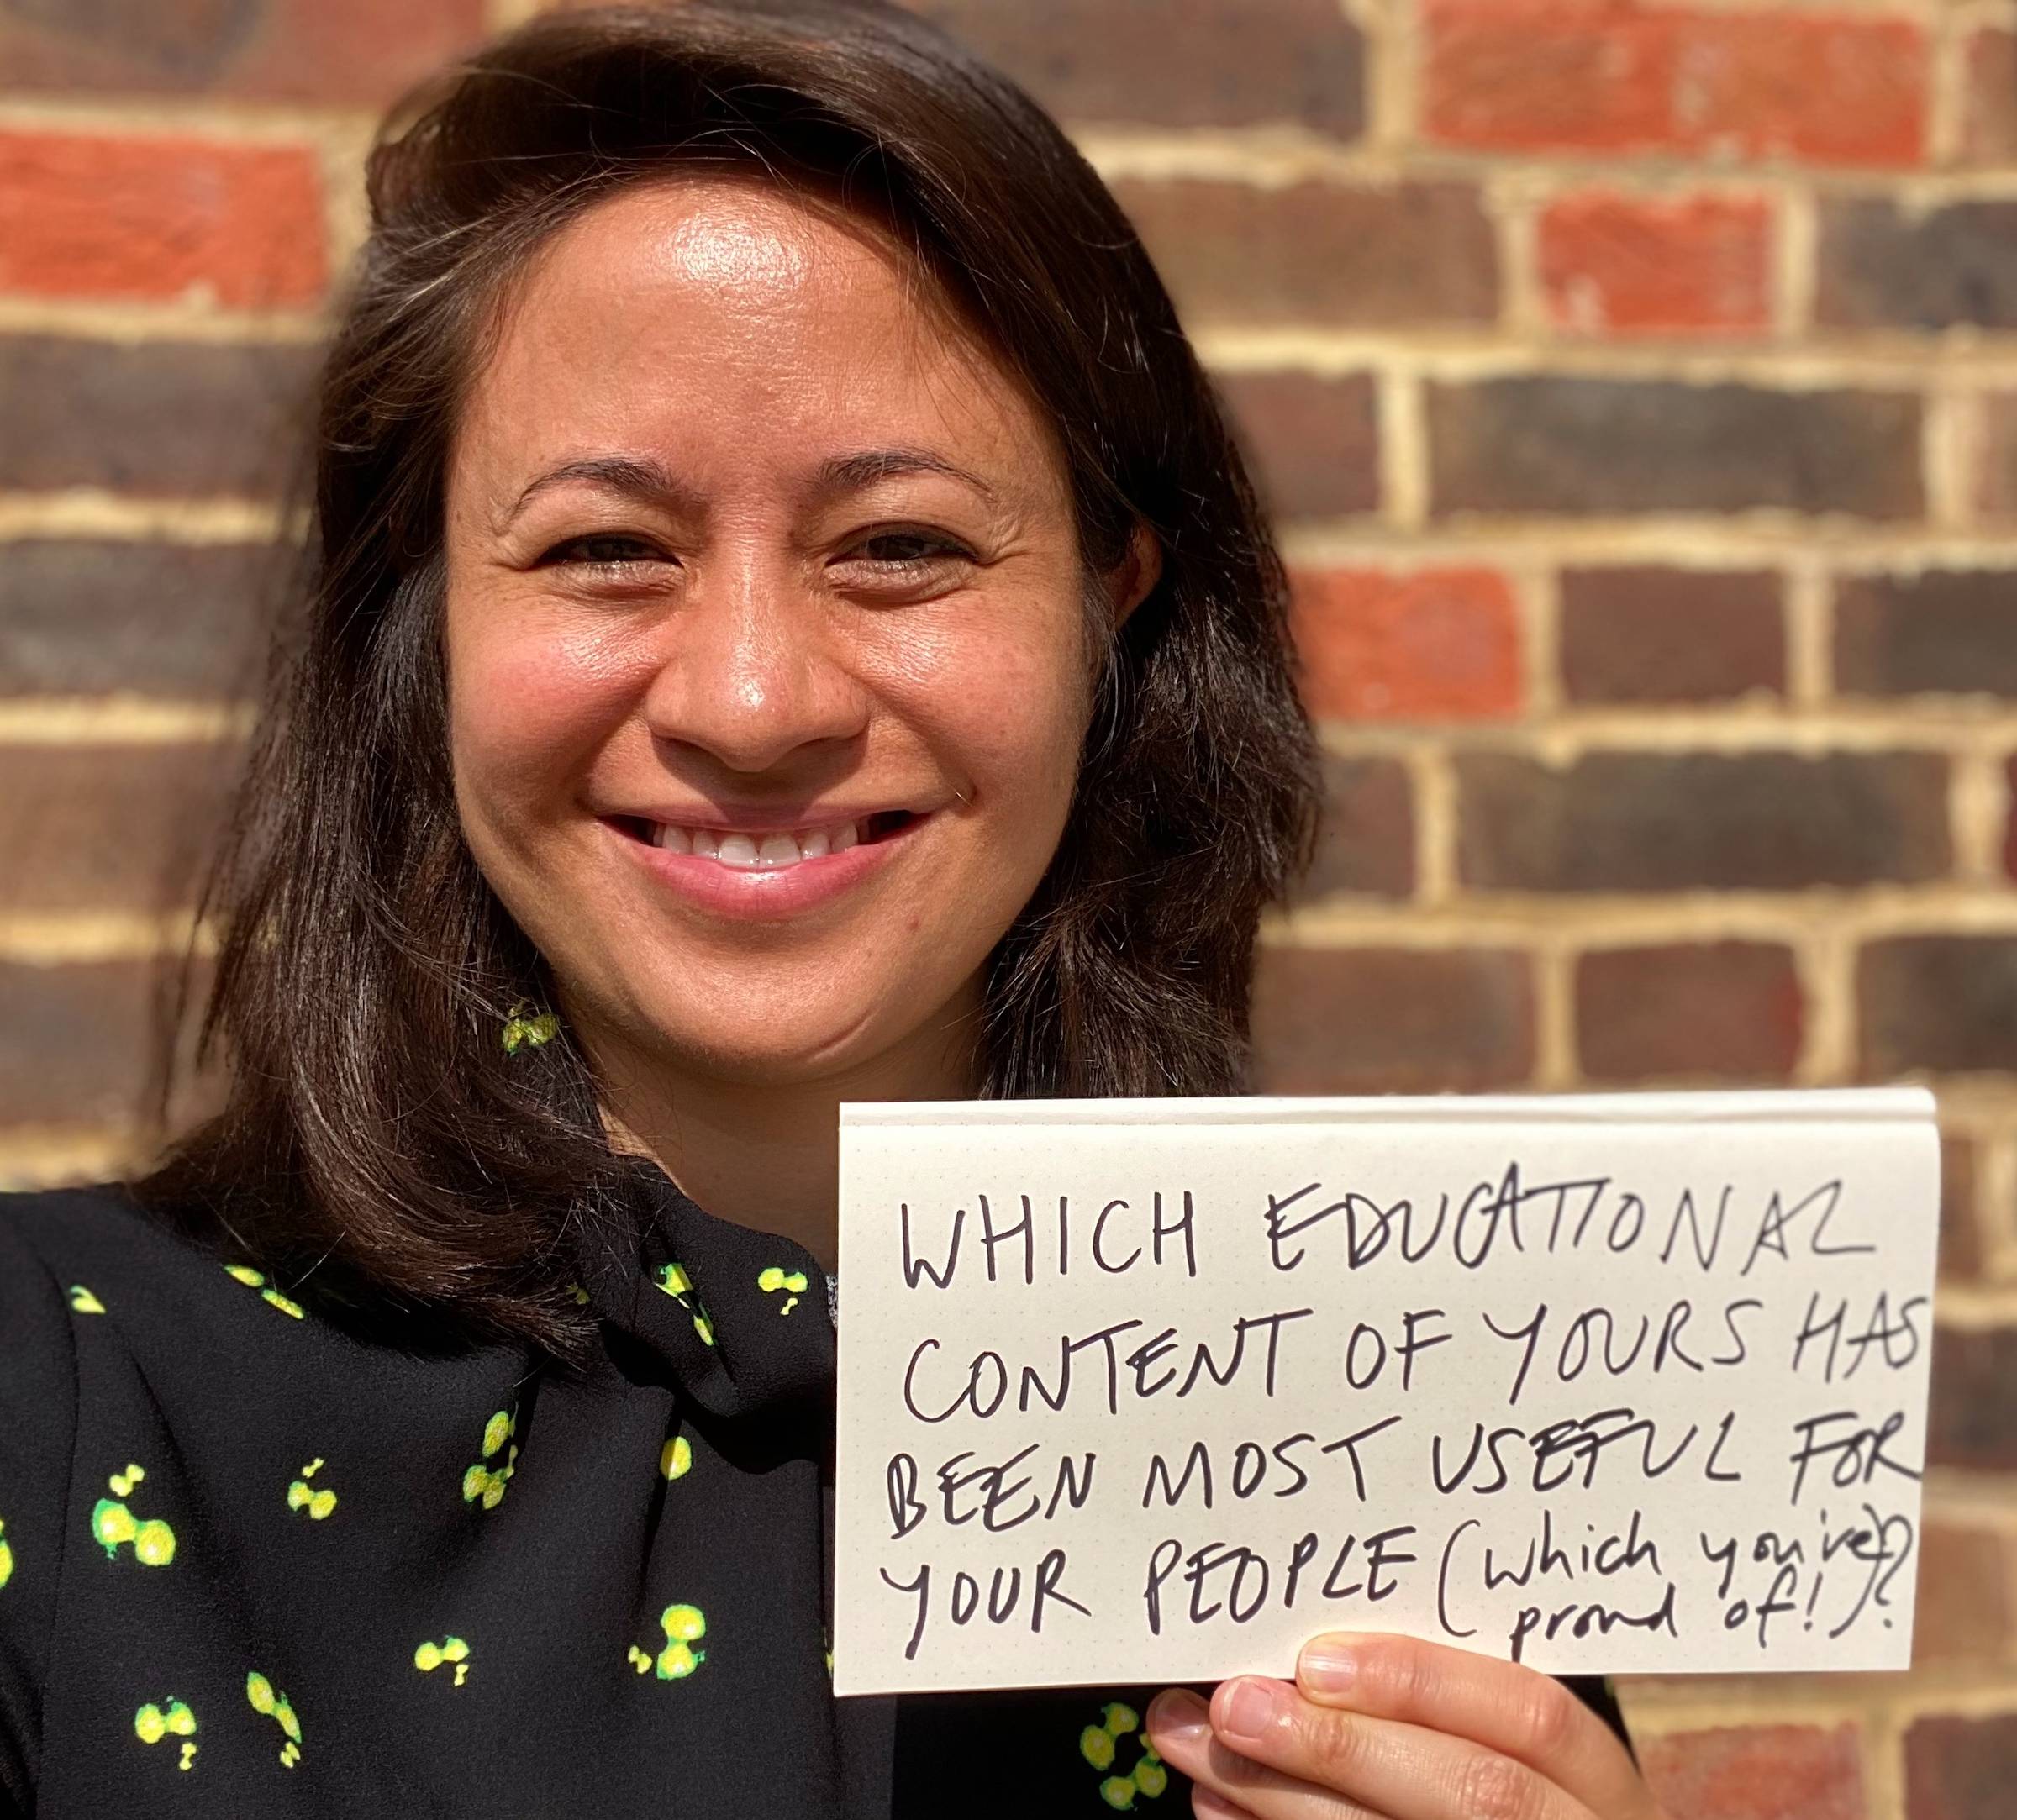 WHICH EDUCATIONAL
CONTENT OF YOURS HAS
BEEN MOST USEFUL FOR
YOUR PEOPLE (which you're
proud of!)?